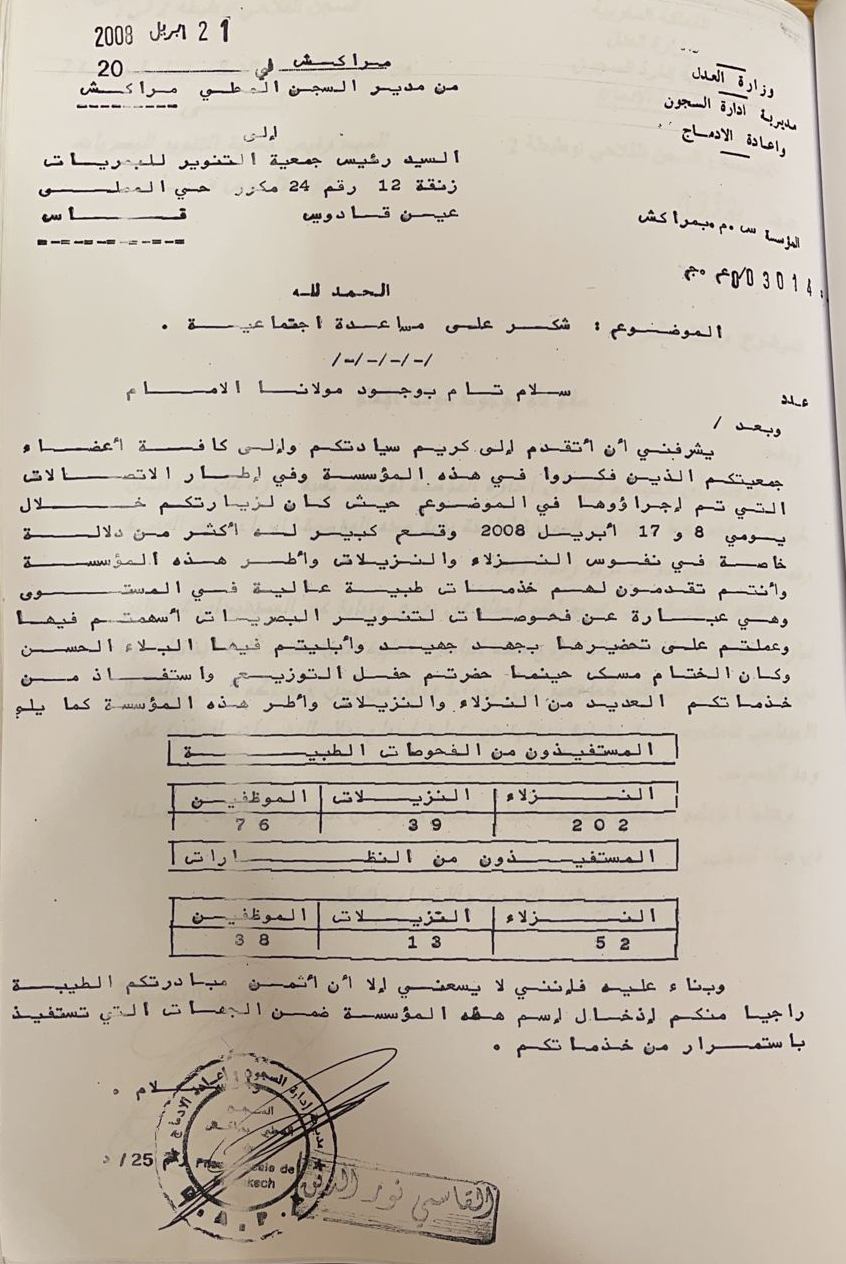 21 ابريل 2008
مراكش في 20
من مدير السجن المحلي مراكش
وزارة العدل
مديرية ادارة السجون
واعادة الادماج
إلى
السيد رئيس جمعية التنوير للبصريات
زنقة 12 رقم 24 مكرر حي المصلى
عين قادوس فاس
المؤسسة س.م.بمراكش
03014
الحمد لله
الموضوع : شكر على مساعدة اجتماعية .
/-/-/-/-/
سلام تام بوجود مولانا الامام
عدد
وبعد /
يشرفني أن أتقدم إلى كريم سيادتكم وإلى كافة أعضاء
جمعيتكم الذين فكروا في هذه المؤسسة وفي إطار الاتصالات
التي تم إجراؤها في الموضوع حيث كان لزيارتكم خلال
يومي 8 و 17 أبريل 2008 وقع كبير له أكثر من دلالة
خاصة في نفوس النزلاء والنزيلات وأطر هذه المؤسسة
وأنتم تقدمون لهم خذمات طبية عالية في المستوى
وهي عبارة عن فحوصات لتنوير البصريات أسهمتم فيها
وعملتم على تحضيرها بجهد جهيد وأبليتم فيها البلاء الحسن
وكان الختام مسك حينما حضرتم حفل التوزيع واستفاذ من
خذماتكم العديد من النزلاء والنزيلات وأطر هذه المؤسسة كما يلي
المستفيذون من الفحوصات الطبية
النزلاء | النزيلات | الموظفين
202 | 39 | 76
المستفيذون من النظارات
النزلاء | النزيلات | الموظفين
52 | 13 | 38
وبناء عليه فإنني لا يسعني إلا أن أثمن مبادرتكم الطيبة
راجيا منكم إدخال إسم هذه المؤسسة ضمن الجهات التي تستفيذ
باستمرار من خذماتكم .
مديرية إدارة السجون وإعادة الادماج
25/
القاسمي نور